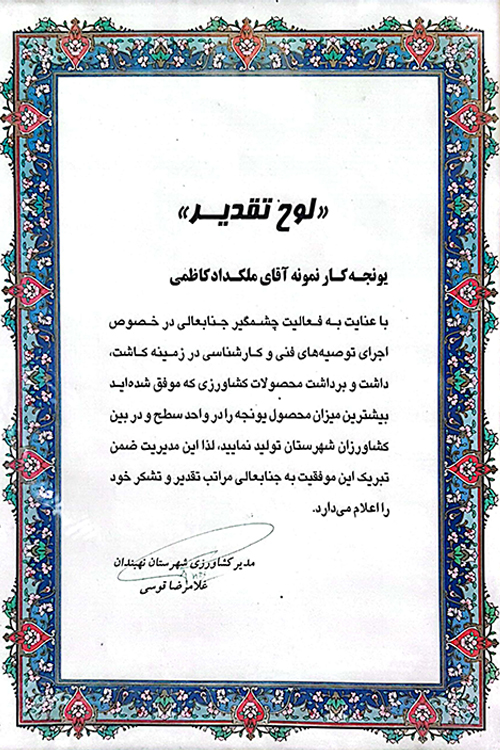 «لوح تقدیر»
یونجه کار نمونه آقای ملکداد کاظمی
با عنایت به فعالیت چشمگیر جنابعالی در خصوص
اجرای توصیه‌های فنی و کارشناسی در زمینه کاشت،
داشت و برداشت محصولات کشاورزی که موفق شده‌اید
بیشترین میزان محصول یونجه را در واحد سطح و در بین
کشاورزان شهرستان تولید نمایید، لذا این مدیریت ضمن
تبریک این موفقیت به جنابعالی مراتب تقدیر و تشکر خود
را اعلام می‌دارد.
مدیر کشاورزی شهرستان نهبندان
غلامرضا قوسی